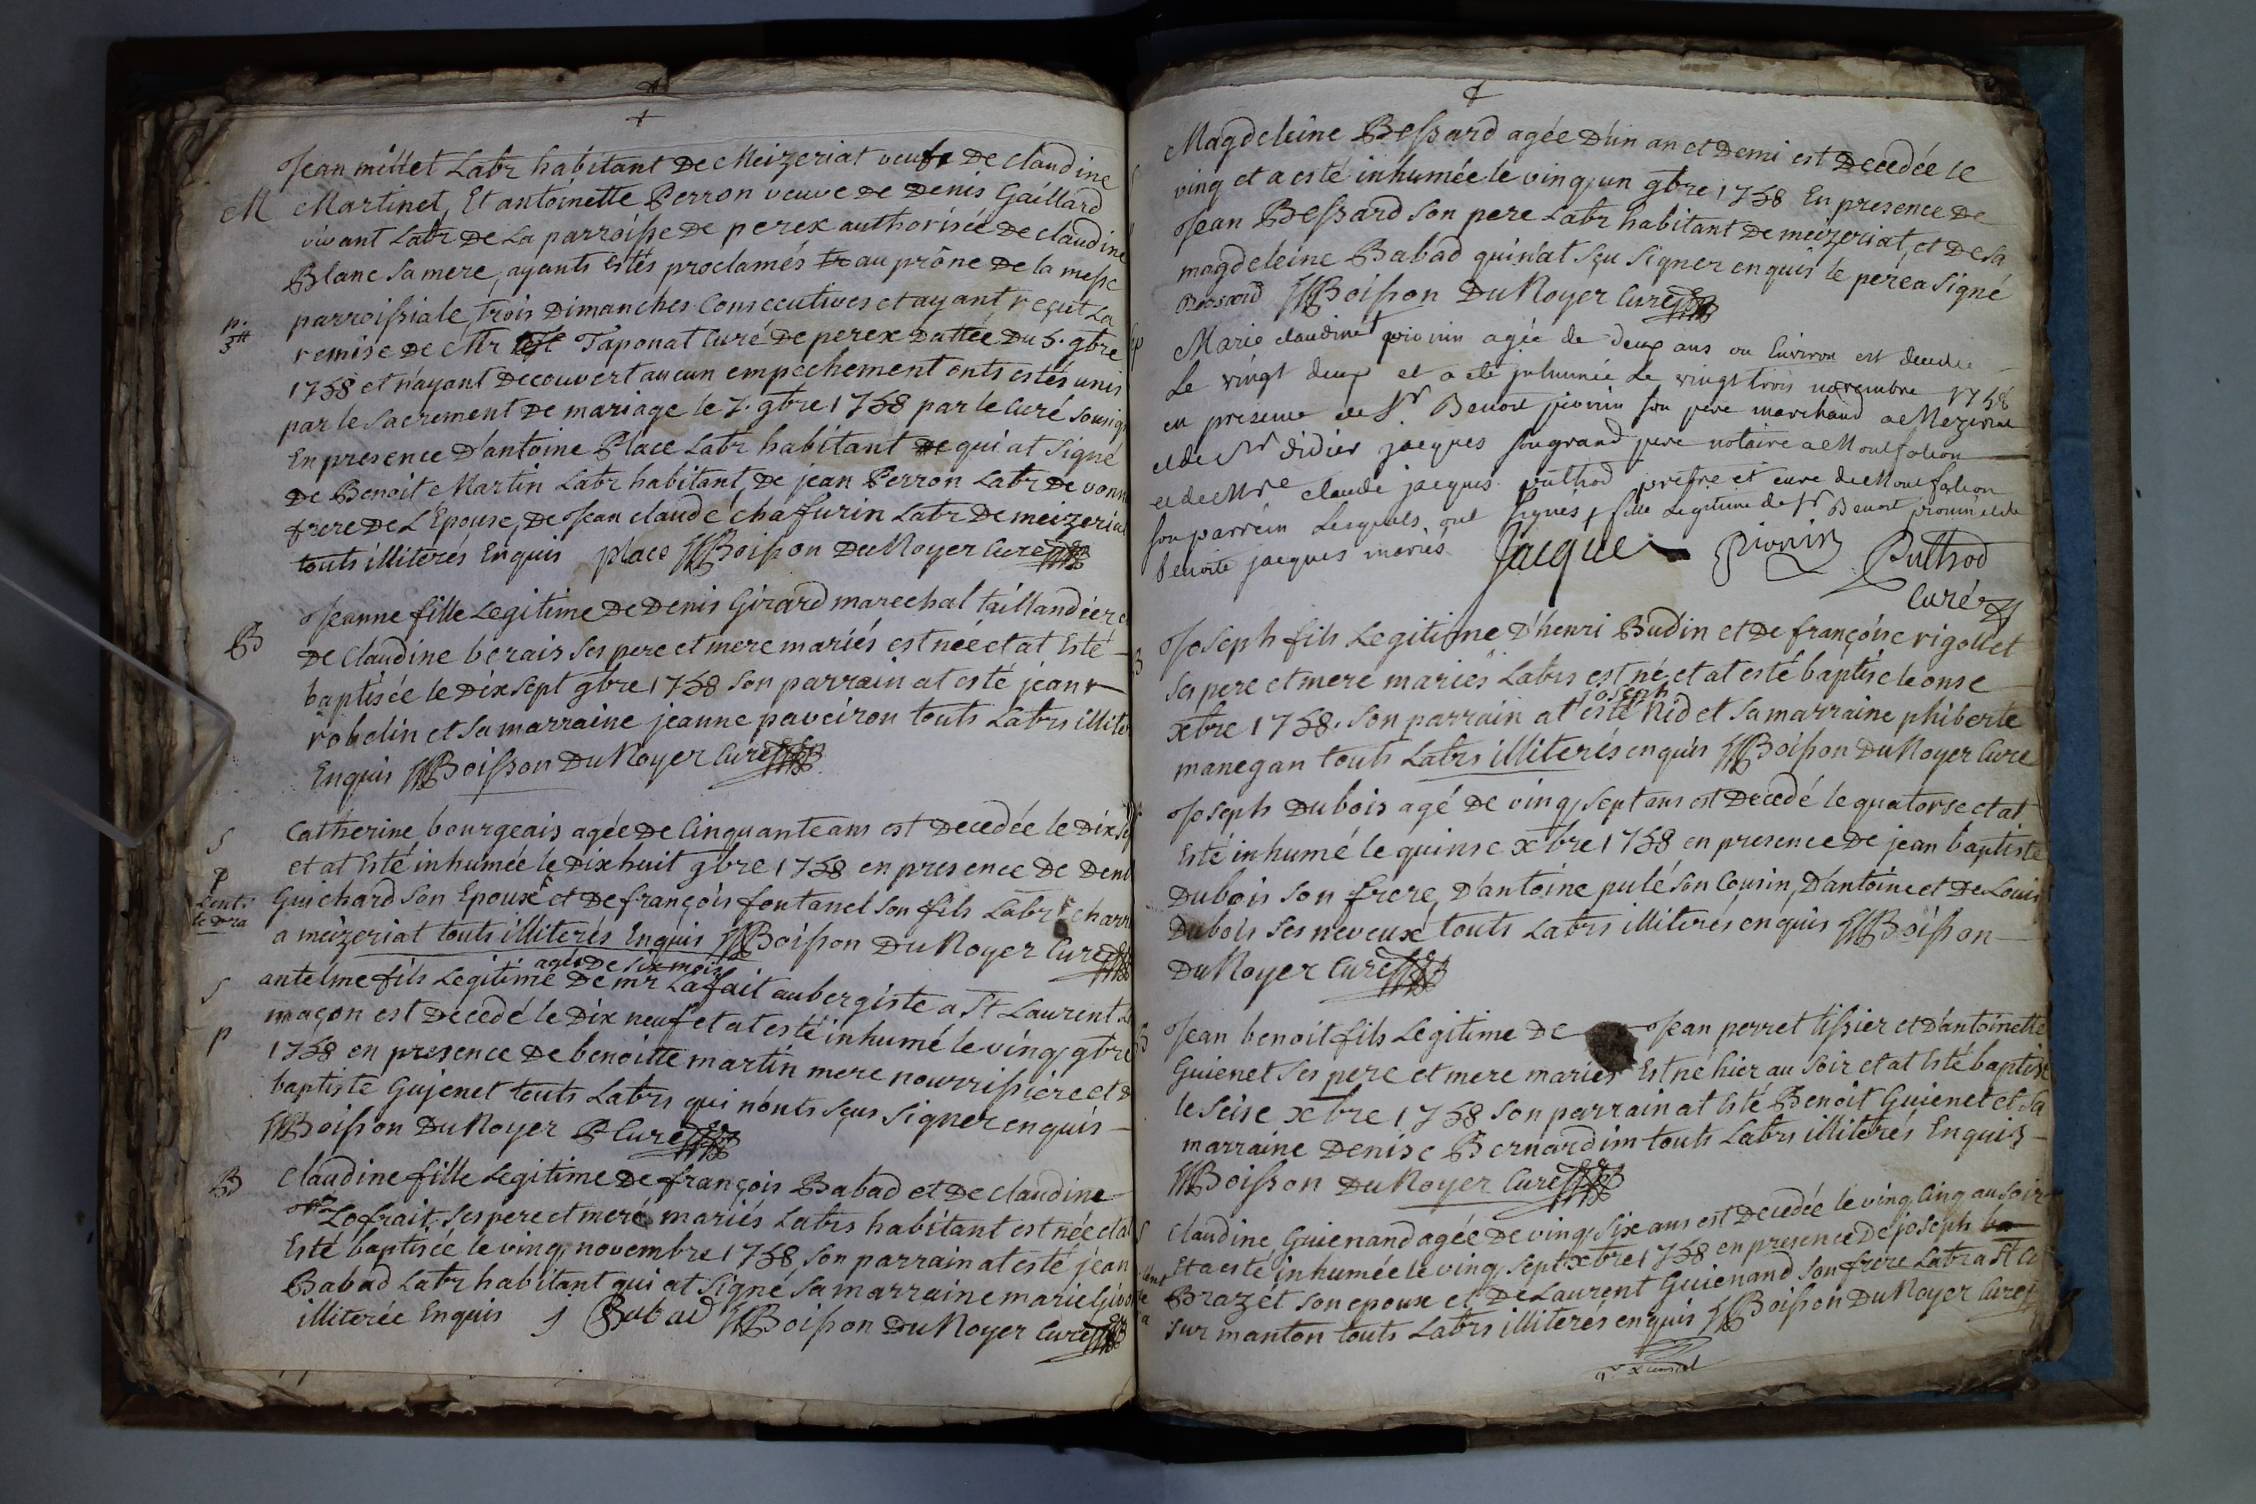 Jean millet Labr habitant De Meizeriat veuf De claudine
M Martinet, Et antoinette Perron veuve De Denis Gaillard
vivant Labr De La parroisse De perex authorisée De claudine
Blanc sa mere, ayants Estés proclamés au prône De la messe
parroissiale trois Dimanches Consecutives et ayant reçut La
remise De Mr Taponat Curé De perex Dattée Du 5. 9bre
1758 et n'ayant Decouvert aucun empechement onts estés unis
par le sacrement De mariage le 7. 9bre 1758 par le Curé sousig
En presence D'antoine Place Labr habitant qui at signé
De Benoit Martin Labr habitant, De jean Perron Labr De vonn
frere De L'Epouse, De Jean claude chafurin Labr De meizeriat
touts illiterés Enquis place Boisson Du Noyer Curé
Jeanne fille Legitime De Denis Girard marechal taillandier e
B De claudine berais ses pere et mere mariés est née et at Esté
baptisée le Dix sept 9bre 1758 son parrain at esté jean
robelin et sa marraine jeanne paveiron touts Labrs illite
Enquis Boisson Du Noyer Curé
S Catherine bourgeais agée De Cinquante ans est Decedée le Dix
et at Esté inhumée le Dix huit 9bre 1758 en presence De Deni
Guichard son Epoux et De françois fontanel son fils Labr
a meizeriat touts illiterés Enquis Boisson Du Noyer Curé
agé De six mois
S antelme fils Legitime De mr Lafait aubergiste a St Laurent
maçon est Decedé le Dix neuf et at esté inhumé le ving 9bre
p 1758 en presence De benoitte martin mere nourrissiere et d
baptiste Gujenet touts Labrs qui n'onts sçus signer enquis
Boisson Du Noyer Curé
B Claudine fille Legitime De françois Babad et De claudine
Lofrait, ses pere et mere mariés Labrs habitant est née et at
Esté baptisée le ving novembre 1758 son parrain at esté jean
Babad Labr habitant qui at signé sa marraine marie
illiterée Enquis J Babad Boisson Du Noyer Curé
Magdeleine Bessard agée D'un an et Demi est Decedée le
ving et a esté inhumée le ving un 9bre 1758 En presence De
Jean Bessard son pere Labr habitant De meizeriat, et De sa
magdeleine Babad qui n'at sçu signer enquis le pere a signé
Bessard Boisson Du Noyer Curé
Marie claudine pionin agée de deux ans ou Environ est decedee
Le vingt deux et a eté jnhumée Le vingt trois novembre 1758
en presence de Sr Benoit pionin son pere marchand a Mezeriat
et de Sr didier jacques son grand pere notaire a Montfalcon
et de Mre claude jacques puthod pretre et curé de Montfalcon
son parrein Lesquels ont signés, fille Legitime de Sr Benoit pionin et de
benoite jacques mariés Jacques Pionin Puthod
Curé
Joseph fils Legitime D'henri Budin et De françoise rigollet
ses pere et mere mariés Labrs est né et at esté baptisé le onse
joseph
xbre 1758. son parrain at esté Nid et sa marraine phiberte
manegan touts Labrs illiterés enquis Boisson Du Noyer Curé
Joseph Dubois agé De ving sept ans est Decedé le quatorse et at
Esté inhumé le quinse xbre 1758 en presence De jean baptiste
Dubois son frere, D'antoine puté son Cousin, D'antoine et De Louis
Dubois ses neveux touts Labrs illiterés enquis Boisson
Du Noyer Curé
Jean benoit fils Legitime De Jean perret tissier et D'antoinette
Guienet ses pere et mere mariés Est né hier au soir et at Esté baptisé
le seise xbre 1758 son parrain at Esté Benoit Guienet et sa
marraine Denise Bernardim touts Labrs illiterés Enquis
Boisson Du Noyer Curé
S Claudine Guienand agée De ving six ans est Decedée le ving Cinq au soir
Et a esté inhumée le ving sept xbre 1758 en presence De joseph
Brazet son epoux et De Laurent Guienand son frere Labr a St
sur manton touts Labrs illiterés enquis Boisson Du Noyer Curé